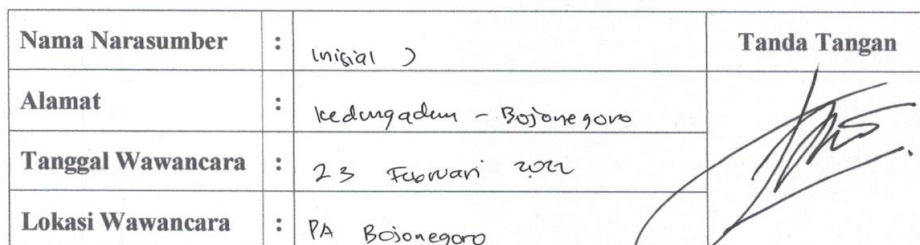 Nama Narasumber : Inisial J Tanda Tangan
Alamat : Kedungadem - Bojonegoro
Tanggal Wawancara : 23 Februari 2022
Lokasi Wawancara : PA Bojonegoro